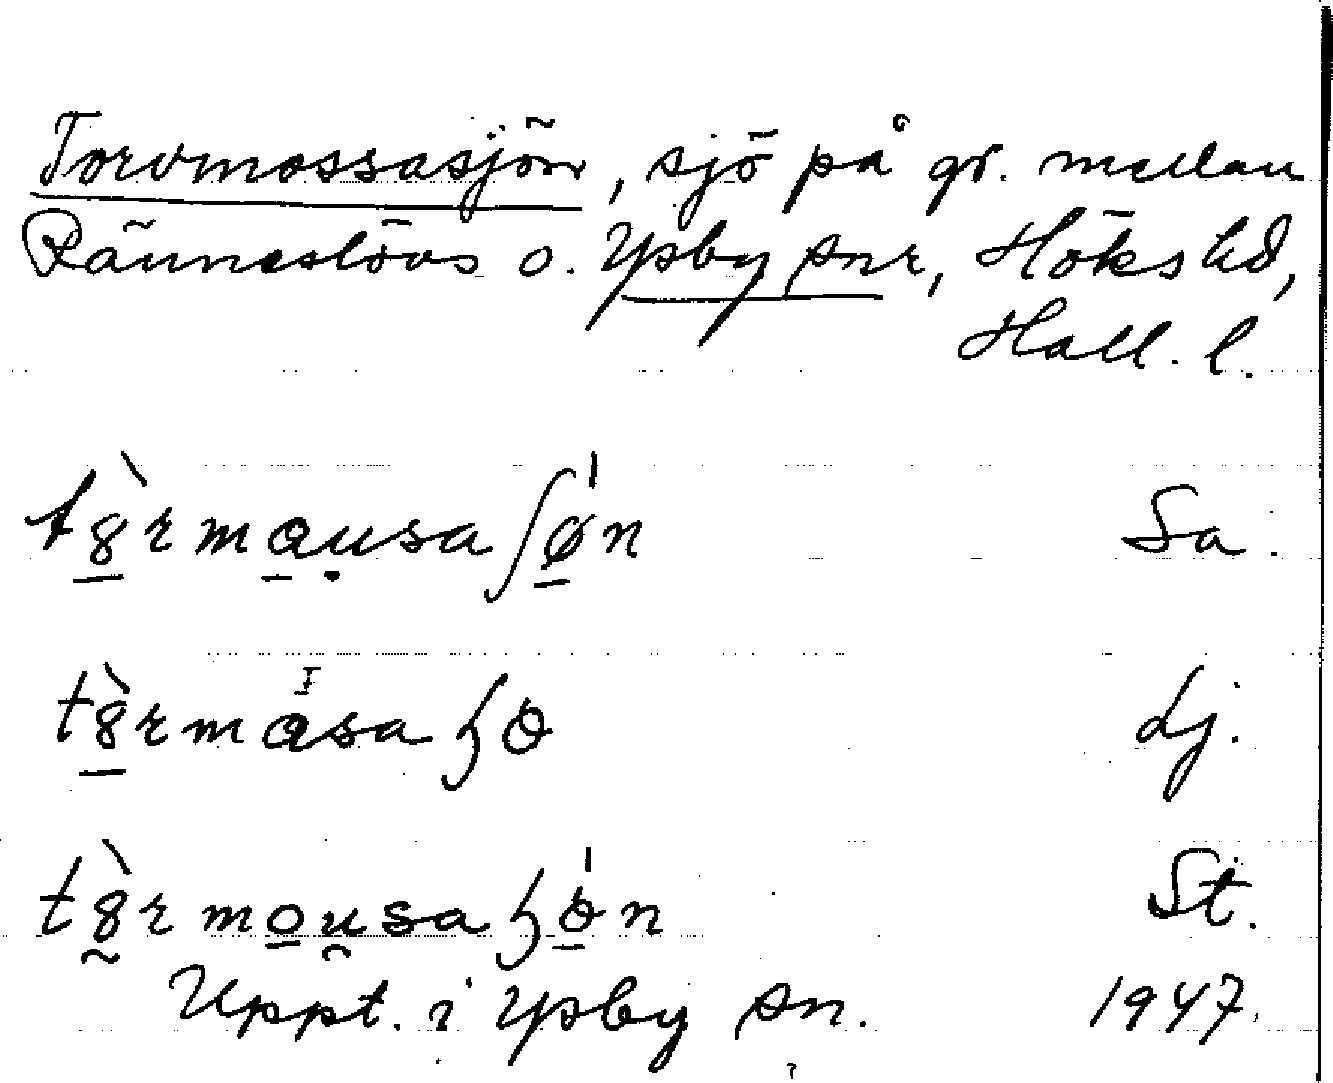 Torvmossasjön, sjö på gr. mellan
Ränneslövs o. Ysby snr, Höks hd,
Hall. l.
tȣ̀rmo̱ụsaʃǿ̱n Sa.
tȣ̀rmåsa Lj.
tȣ̀rmo̱usa St.
Uppt. i Ysby sn. 1947.